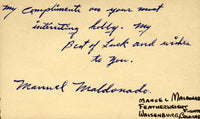 my compliments on your most
interesting hobby. my
Best of Luck and wishes
to you.
Manuel Maldonado.
MANUEL MALDONADO
FEATHERWEIGHT
WALSENBURG